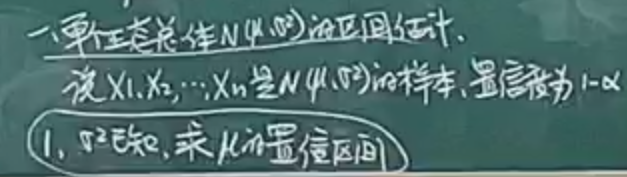 一、单个正态总体N(μ,σ²)的区间估计.
设X1,X2,…,Xn是N(μ,σ²)的样本、置信度为1-α
1、σ²已知,求μ的置信区间